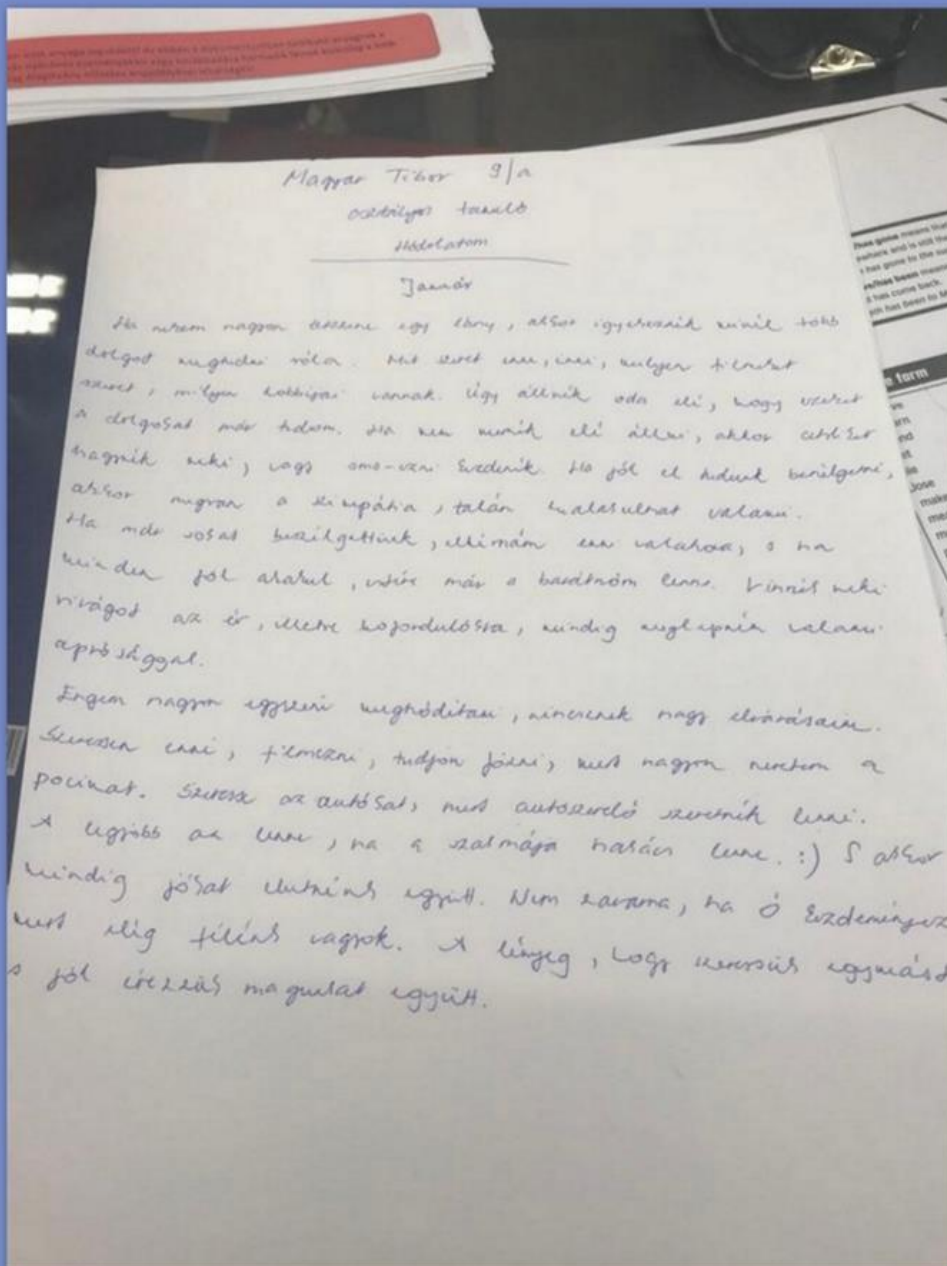 Magyar Tibor 9/a
osztályos tanuló
Hódolatom
Január
Ha nekem nagyon tetszene egy lány, akkor igyekeznék minél több
dolgot megtudni róla. Mit szeret enni, inni, milyen filmeket
szeret, milyen hobbijai vannak. Úgy állnék oda elé, hogy ezeket
a dolgokat már tudom. Ha nem mernék elé állni, akkor cetliket
hagynék neki, vagy sms-ezni kezdenék. Ha jól el tudunk beszélgetni,
akkor megvan a szimpátia, talán kialakulhat valami.
Ha már sokat beszélgettünk, elhívnám enni valahova, s ha
minden jól alakul, utána már a barátnőm lenne. Vinnék neki
virágot az év, illetve hófordulósra, mindig meglepném valami
aprósággal.
Engem nagyon egyszerű meghódítani, nincsenek nagy elvárásaim.
Szeressen enni, filmezni, tudjon főzni, mert nagyon szeretem a
pocimat. Szeresse az autókat, mert autószerelő szeretnék lenni.
A legjobb az lenne, ha a szakmája szakács lenne. :) S akkor
mindig jókat ehetnénk együtt. Nem zavarna, ha ő kezdeményez
mert elég félénk vagyok. A lényeg, hogy szeressük egymást
s jól érezzük magunkat együtt.
has gone means that
has gone to the
has been
has come back.
has been to
form
Jose